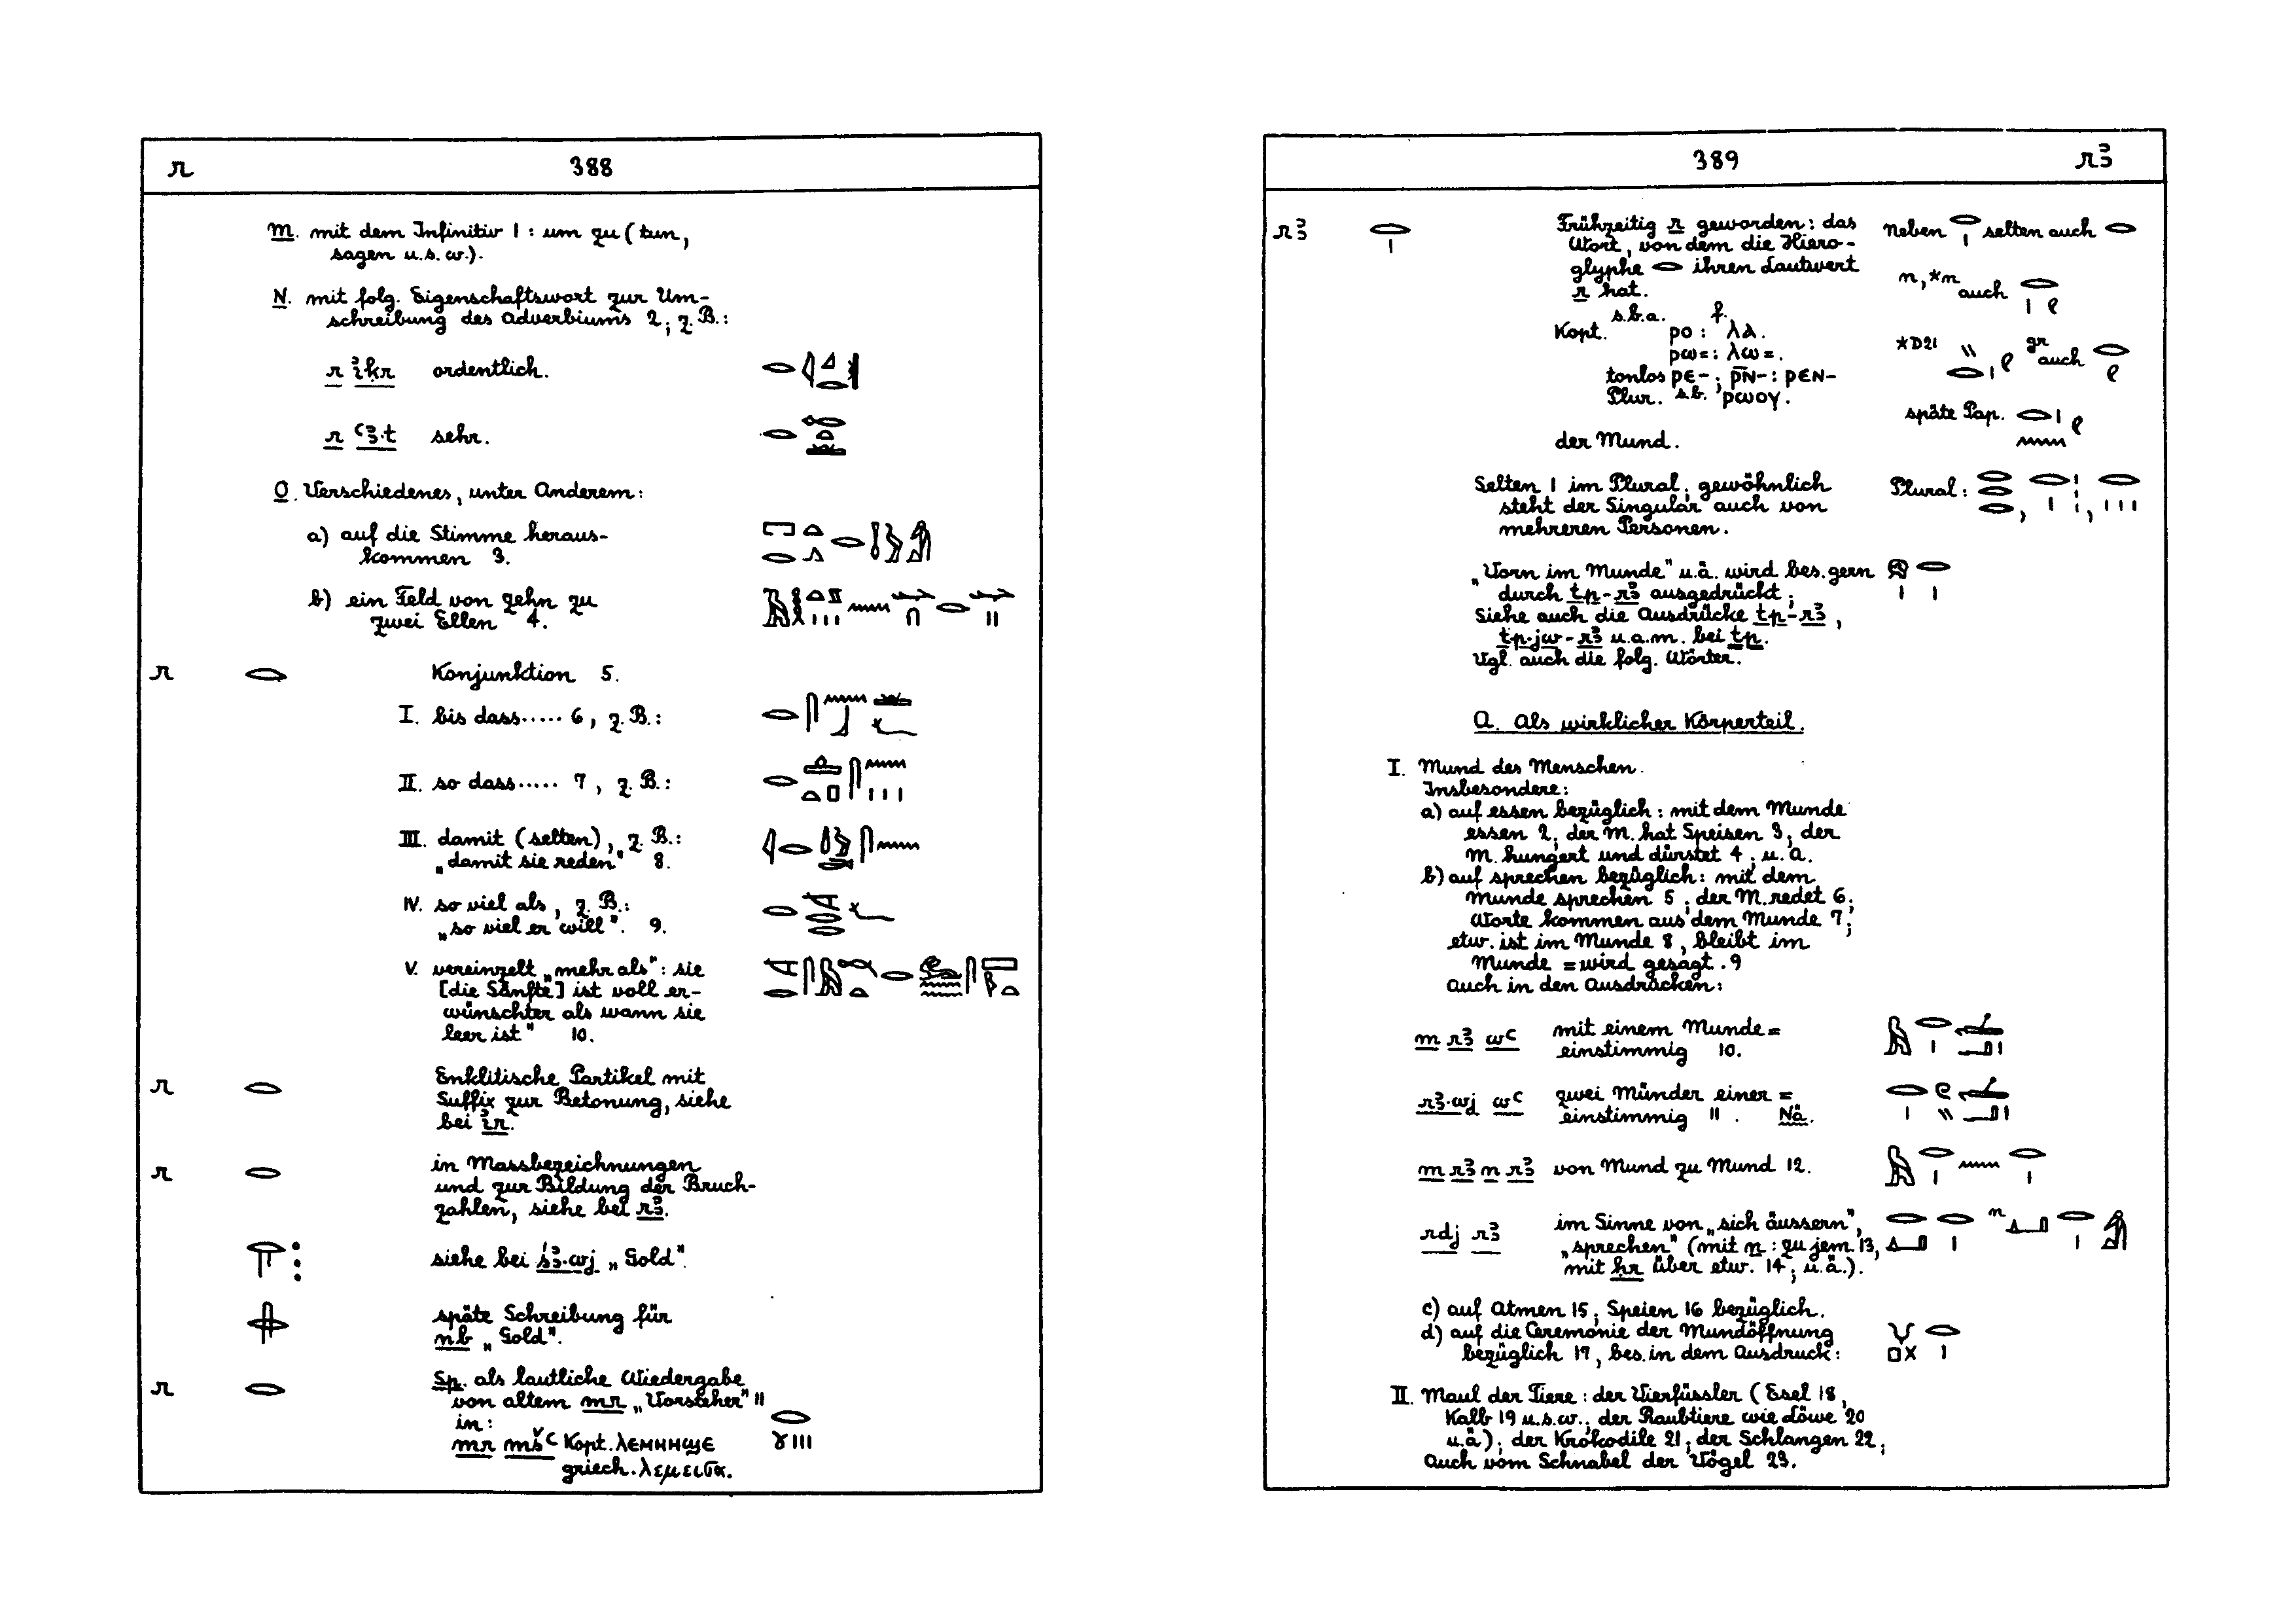 r 388
M. mit dem Infinitiv 1 : um zu (tun,
sagen u.s.w.).
N. mit folg. Eigenschaftswort zur Um-
schreibung des Adverbiums 2, z.B.:
r ỉḳr ordentlich.
r ꜥꜣ·t sehr.
O. Verschiedenes, unter Anderem:
a) auf die Stimme heraus-
kommen 3.
b) ein Feld von zehn zu
zwei Ellen 4.
r Konjunktion 5.
I. bis dass..... 6, z.B.:
II. so dass..... 7, z.B.:
III. damit (selten), z.B.:
„damit sie reden" 8.
IV. so viel als, z.B.:
„so viel er will". 9.
V. vereinzelt „mehr als": sie
[die Sänfte] ist voll er-
wünschter als wann sie
leer ist" 10.
r Enklitische Partikel mit
Suffix zur Betonung, siehe
bei ỉr.
r in Massbezeichnungen
und zur Bildung der Bruch-
zahlen, siehe bei rꜣ.
siehe bei śꜣ·wj „Gold".
späte Schreibung für
nb „Gold".
r Sp. als lautliche Wiedergabe
von altem mr „Vorsteher" 11
in:
mr mšꜥ Kopt. ⲗⲉⲙⲏⲏϣⲉ
griech. λεμεισα.
389 rꜣ
rꜣ Frühzeitig r geworden: das
Wort, von dem die Hiero-
glyphe 𓂋 ihren Lautwert
r hat.
s.b.a. f.
Kopt. ⲣⲟ : ⲗⲁ.
ⲣⲱ= : ⲗⲱ=.
tonlos ⲣⲉ- ; ⲣ̄ⲛ- : ⲣⲉⲛ-
Plur. s.b. ⲣⲱⲟⲩ.
der Mund.
Neben 𓂋𓏤 selten auch 𓂋
n, *n auch
*D21 gr auch
späte Pap.
Selten 1 im Plural; gewöhnlich
steht der Singular auch von
mehreren Personen.
Plural:
„Vorn im Munde" u.ä. wird bes. gern
durch tp-rꜣ ausgedrückt;
Siehe auch die Ausdrücke tp-rꜣ,
tp·jw-rꜣ u.a.m. bei tp.
Vgl. auch die folg. Wörter.
A. Als wirklicher Körperteil.
I. Mund des Menschen.
Insbesondere:
a) auf essen bezüglich: mit dem Munde
essen 2; der M. hat Speisen 3; der
M. hungert und dürstet 4; u.a.
b) auf sprechen bezüglich: mit dem
Munde sprechen 5; der M. redet 6;
Worte kommen aus dem Munde 7;
etw. ist im Munde 8, bleibt im
Munde = wird gesagt. 9
Auch in den Ausdrücken:
m rꜣ wꜥ mit einem Munde =
einstimmig 10.
rꜣ·wj wꜥ zwei Münder einer =
einstimmig 11. Nä.
m rꜣ n rꜣ von Mund zu Mund 12.
rdj rꜣ im Sinne von „sich äussern",
„sprechen" (mit n : zu jem. 13,
mit ḥr über etw. 14; u.ä.).
c) auf Atmen 15; Speien 16 bezüglich.
d) auf die Ceremonie der Mundöffnung
bezüglich 17, bes. in dem Ausdruck:
II. Maul der Tiere: der Vierfüssler (Esel 18,
Kalb 19 u.s.w.; der Raubtiere wie Löwe 20
u.ä); der Krokodile 21; der Schlangen 22;
Auch vom Schnabel der Vögel 23.